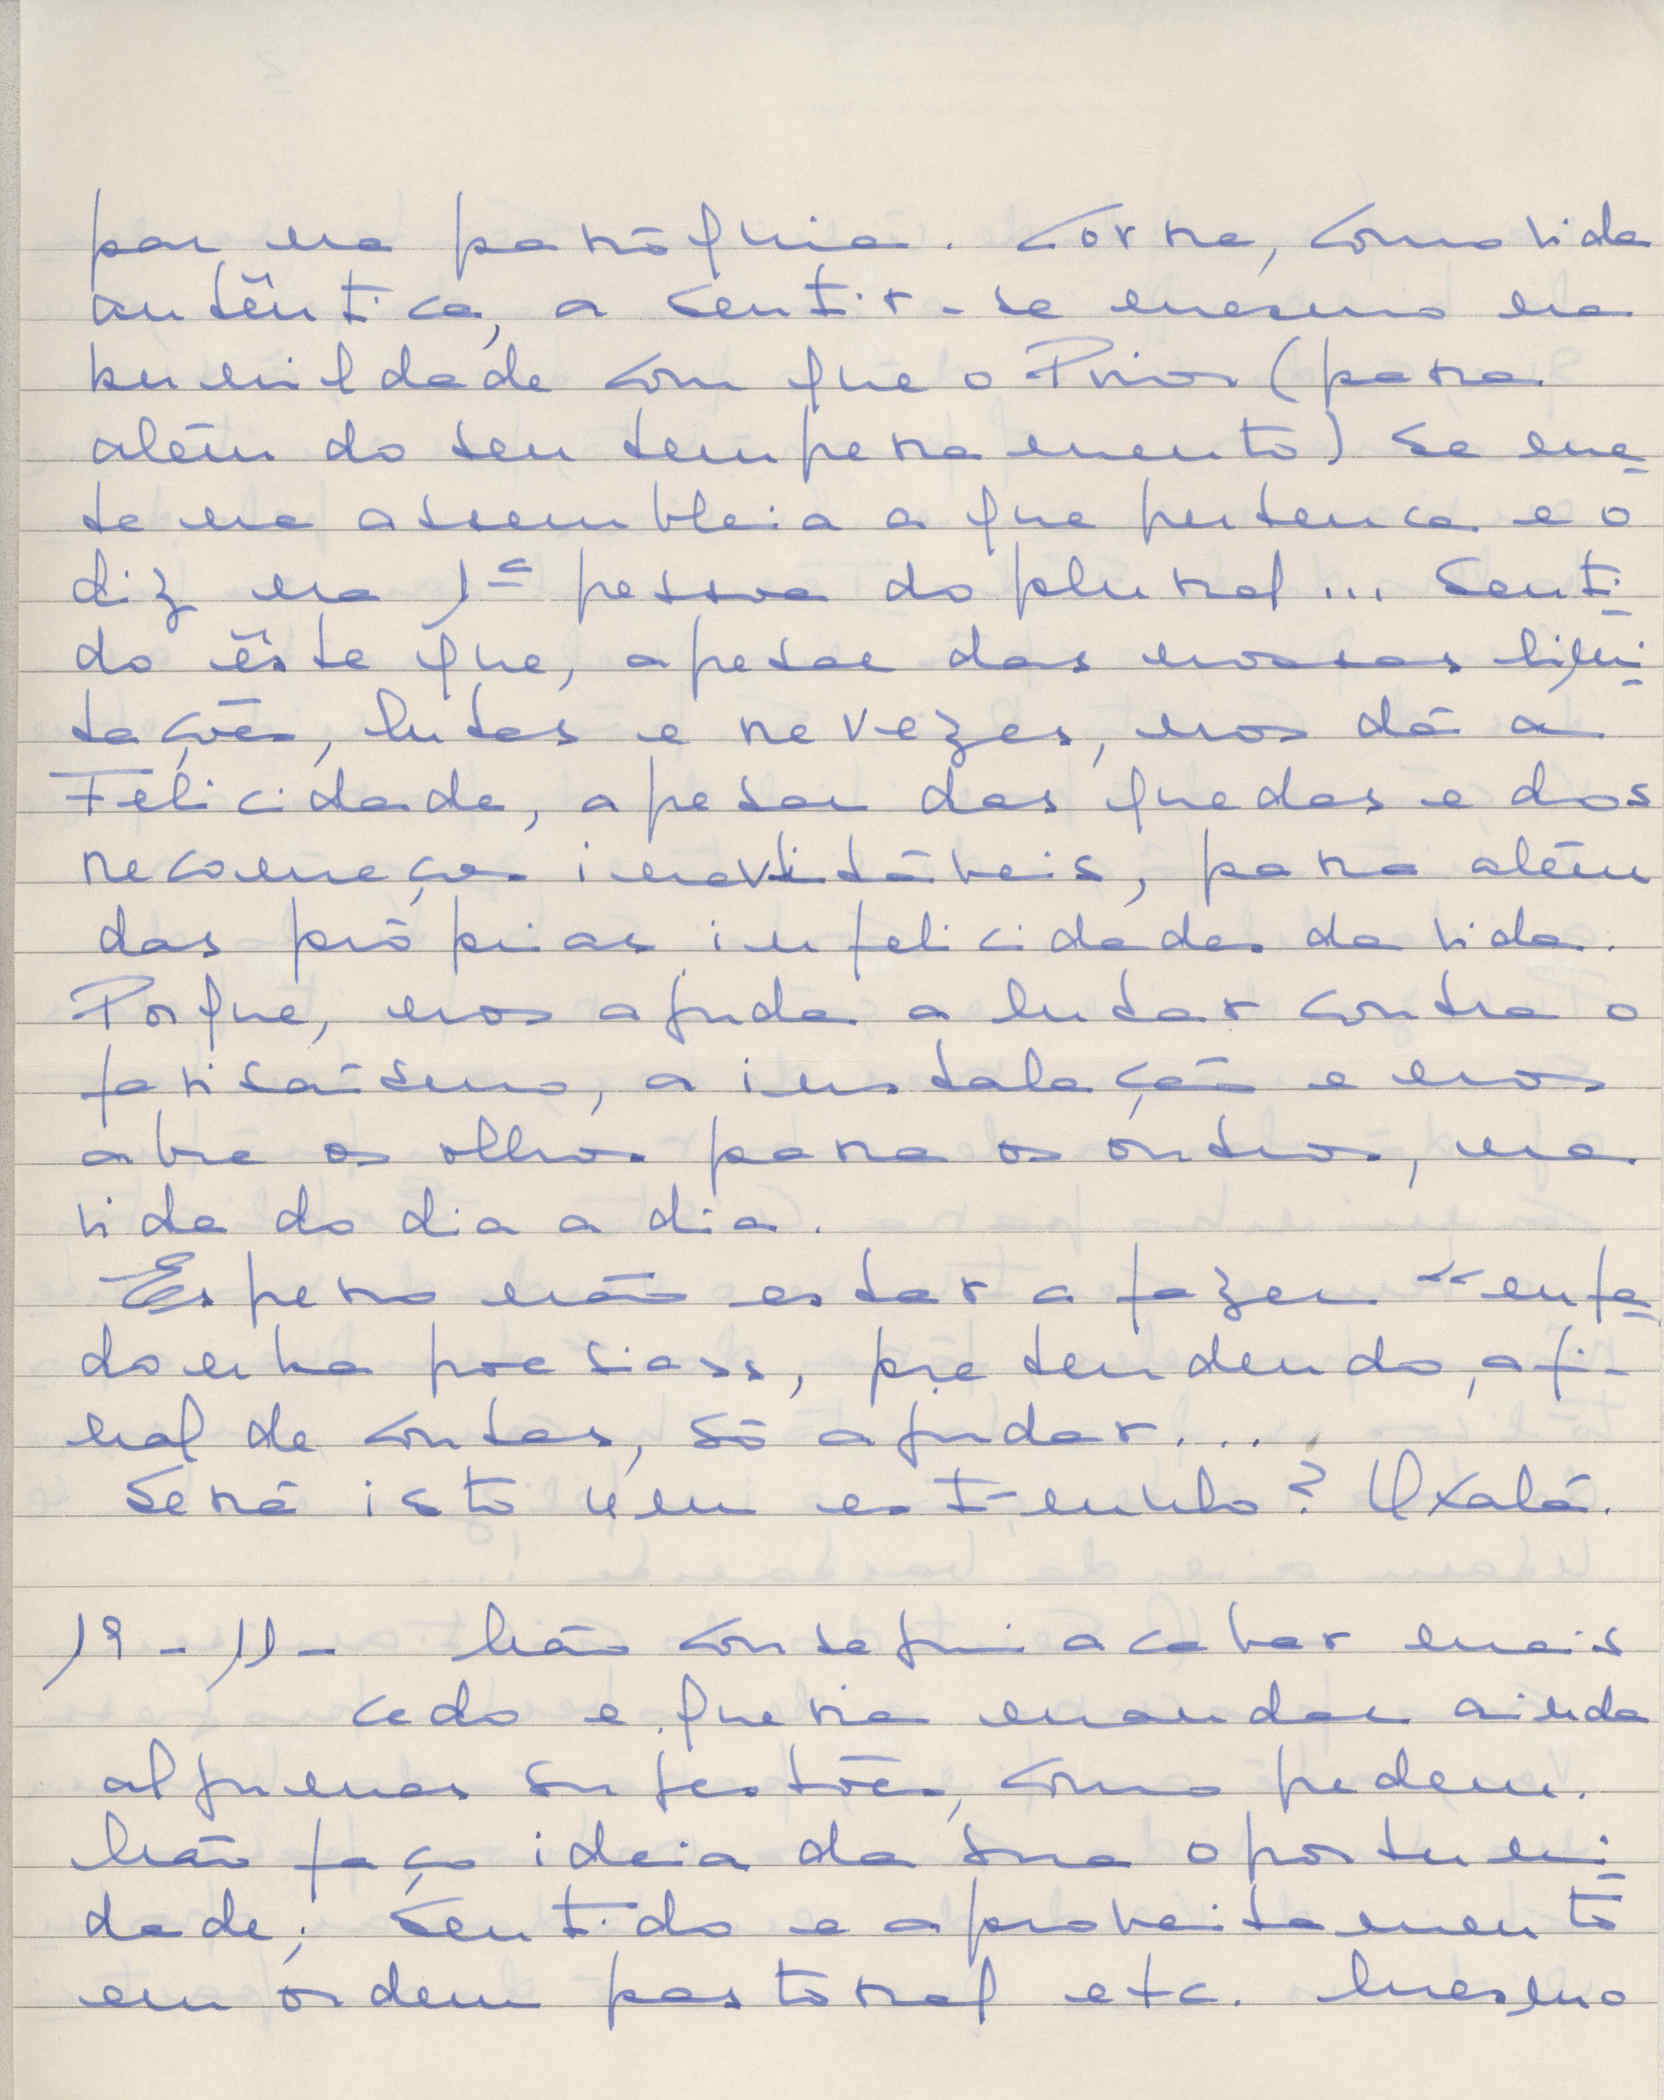 par na paróquia. Corre, como vida
autêntica, a sentir-se mesmo na
humildade com que o Prior (para
além do seu temperamento) se me-
te na assembleia a que pertence e o
diz na 1ª pessoa do plural... Senti-
do êste que, apesar das nossas limi-
tações, lutas e revezes, nos dá a
Felicidade, apesar das quedas e dos
recomeços inevitáveis, para além
das próprias infelicidades da vida.
Porque, nos ajuda a lutar contra o
farisaísmo, a instalação e nos
abre os olhos para os outros, na
vida do dia a dia.
Espero não estar a fazer "enfa-
donha poesias», pretendendo, afi-
nal de contas, só ajudar....
Será isto um estímulo? Oxalá.
19-11- Não consegui acabar mais
cedo e queria mandar ainda
algumas sugestões, como pedem.
Não faço ideia da sua oportuni-
dade; sentido e aproveitamento
em ordem pastoral etc. Mesmo